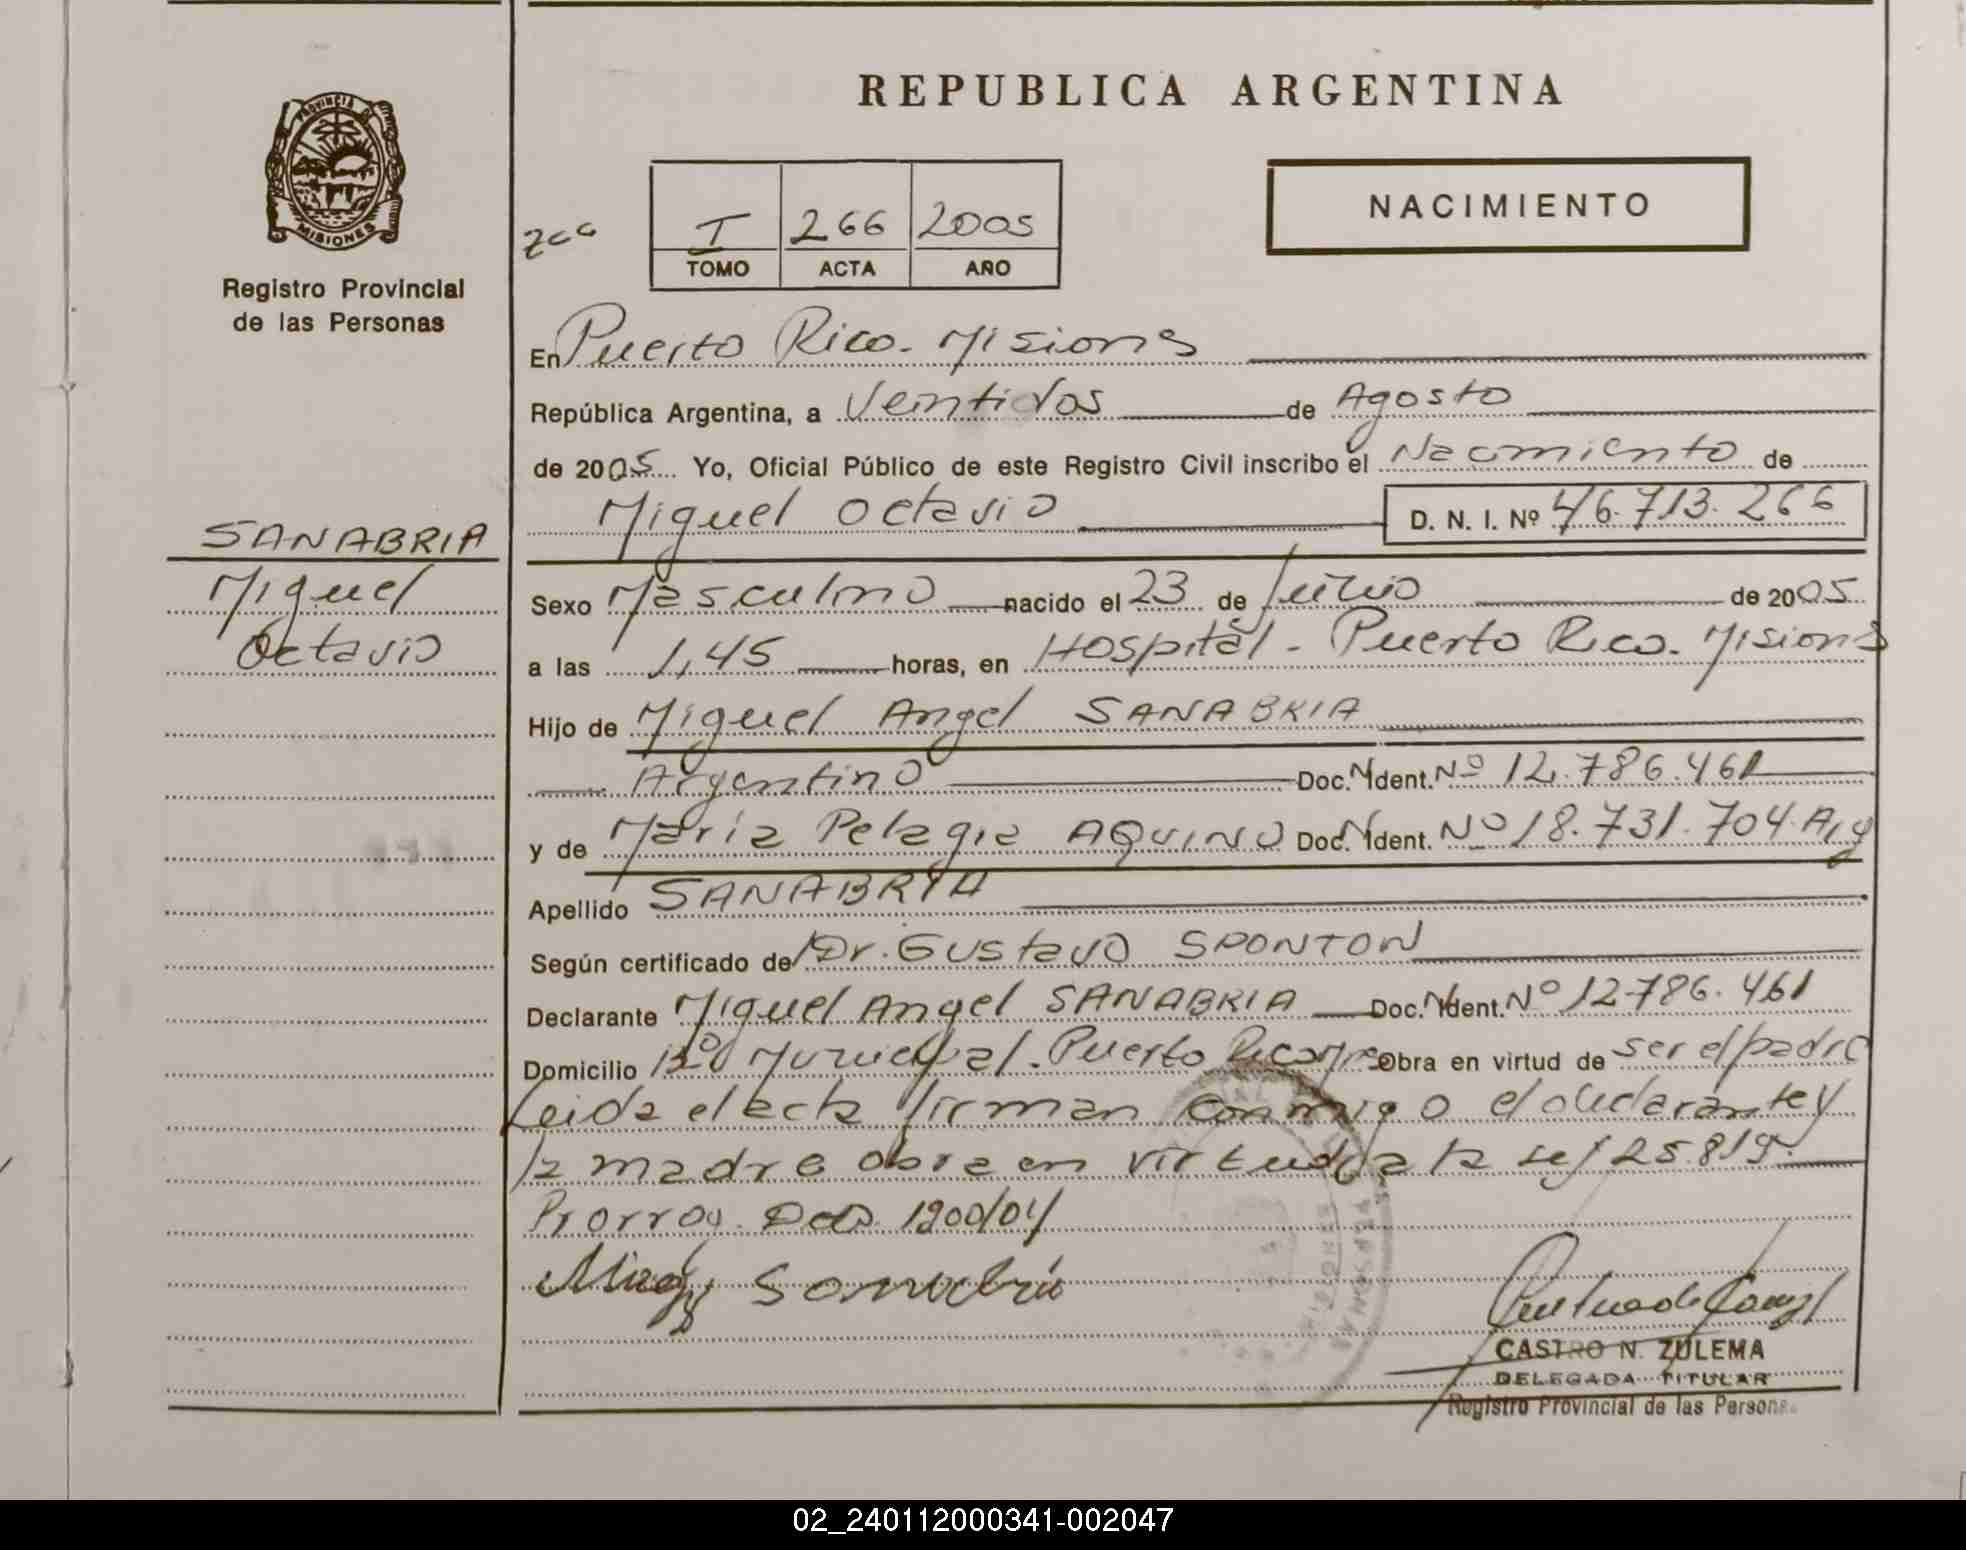 REPUBLICA ARGENTINA
PROVINCIA DE
MISIONES
Registro Provincial
de las Personas
NACIMIENTO
266
I 266 2005
TOMO ACTA AÑO
En Puerto Rico. Misiones
República Argentina, a Veintidos de Agosto
de 2005 Yo, Oficial Público de este Registro Civil inscribo el Nacimiento de
Miguel Octavio D. N. I. Nº 46.713.266
SANABRIA
Miguel
Octavio
Sexo Masculino nacido el 23 de Julio de 2005
a las 1,45 horas, en Hospital - Puerto Rico. Misiones
Hijo de Miguel Angel SANABRIA
Argentino Doc. Ident. Nº 12.786.461
y de Maria Pelagia AQUINO Doc. Ident. Nº 18.731.704. Arg
Apellido SANABRIA
Según certificado de Dr. Gustavo SPONTON
Declarante Miguel Angel SANABRIA Doc. Ident. Nº 12786.461
Domicilio Bº Municipal. Puerto Rico Obra en virtud de ser el padre
Leida el acta firman conmigo el declarante y
la madre obra en virtud a la ley 25.819
Prorrog. Dcto 1200/04
Sanabria
CASTRO N. ZULEMA
DELEGADA TITULAR
Registro Provincial de las Persona
02_240112000341-002047